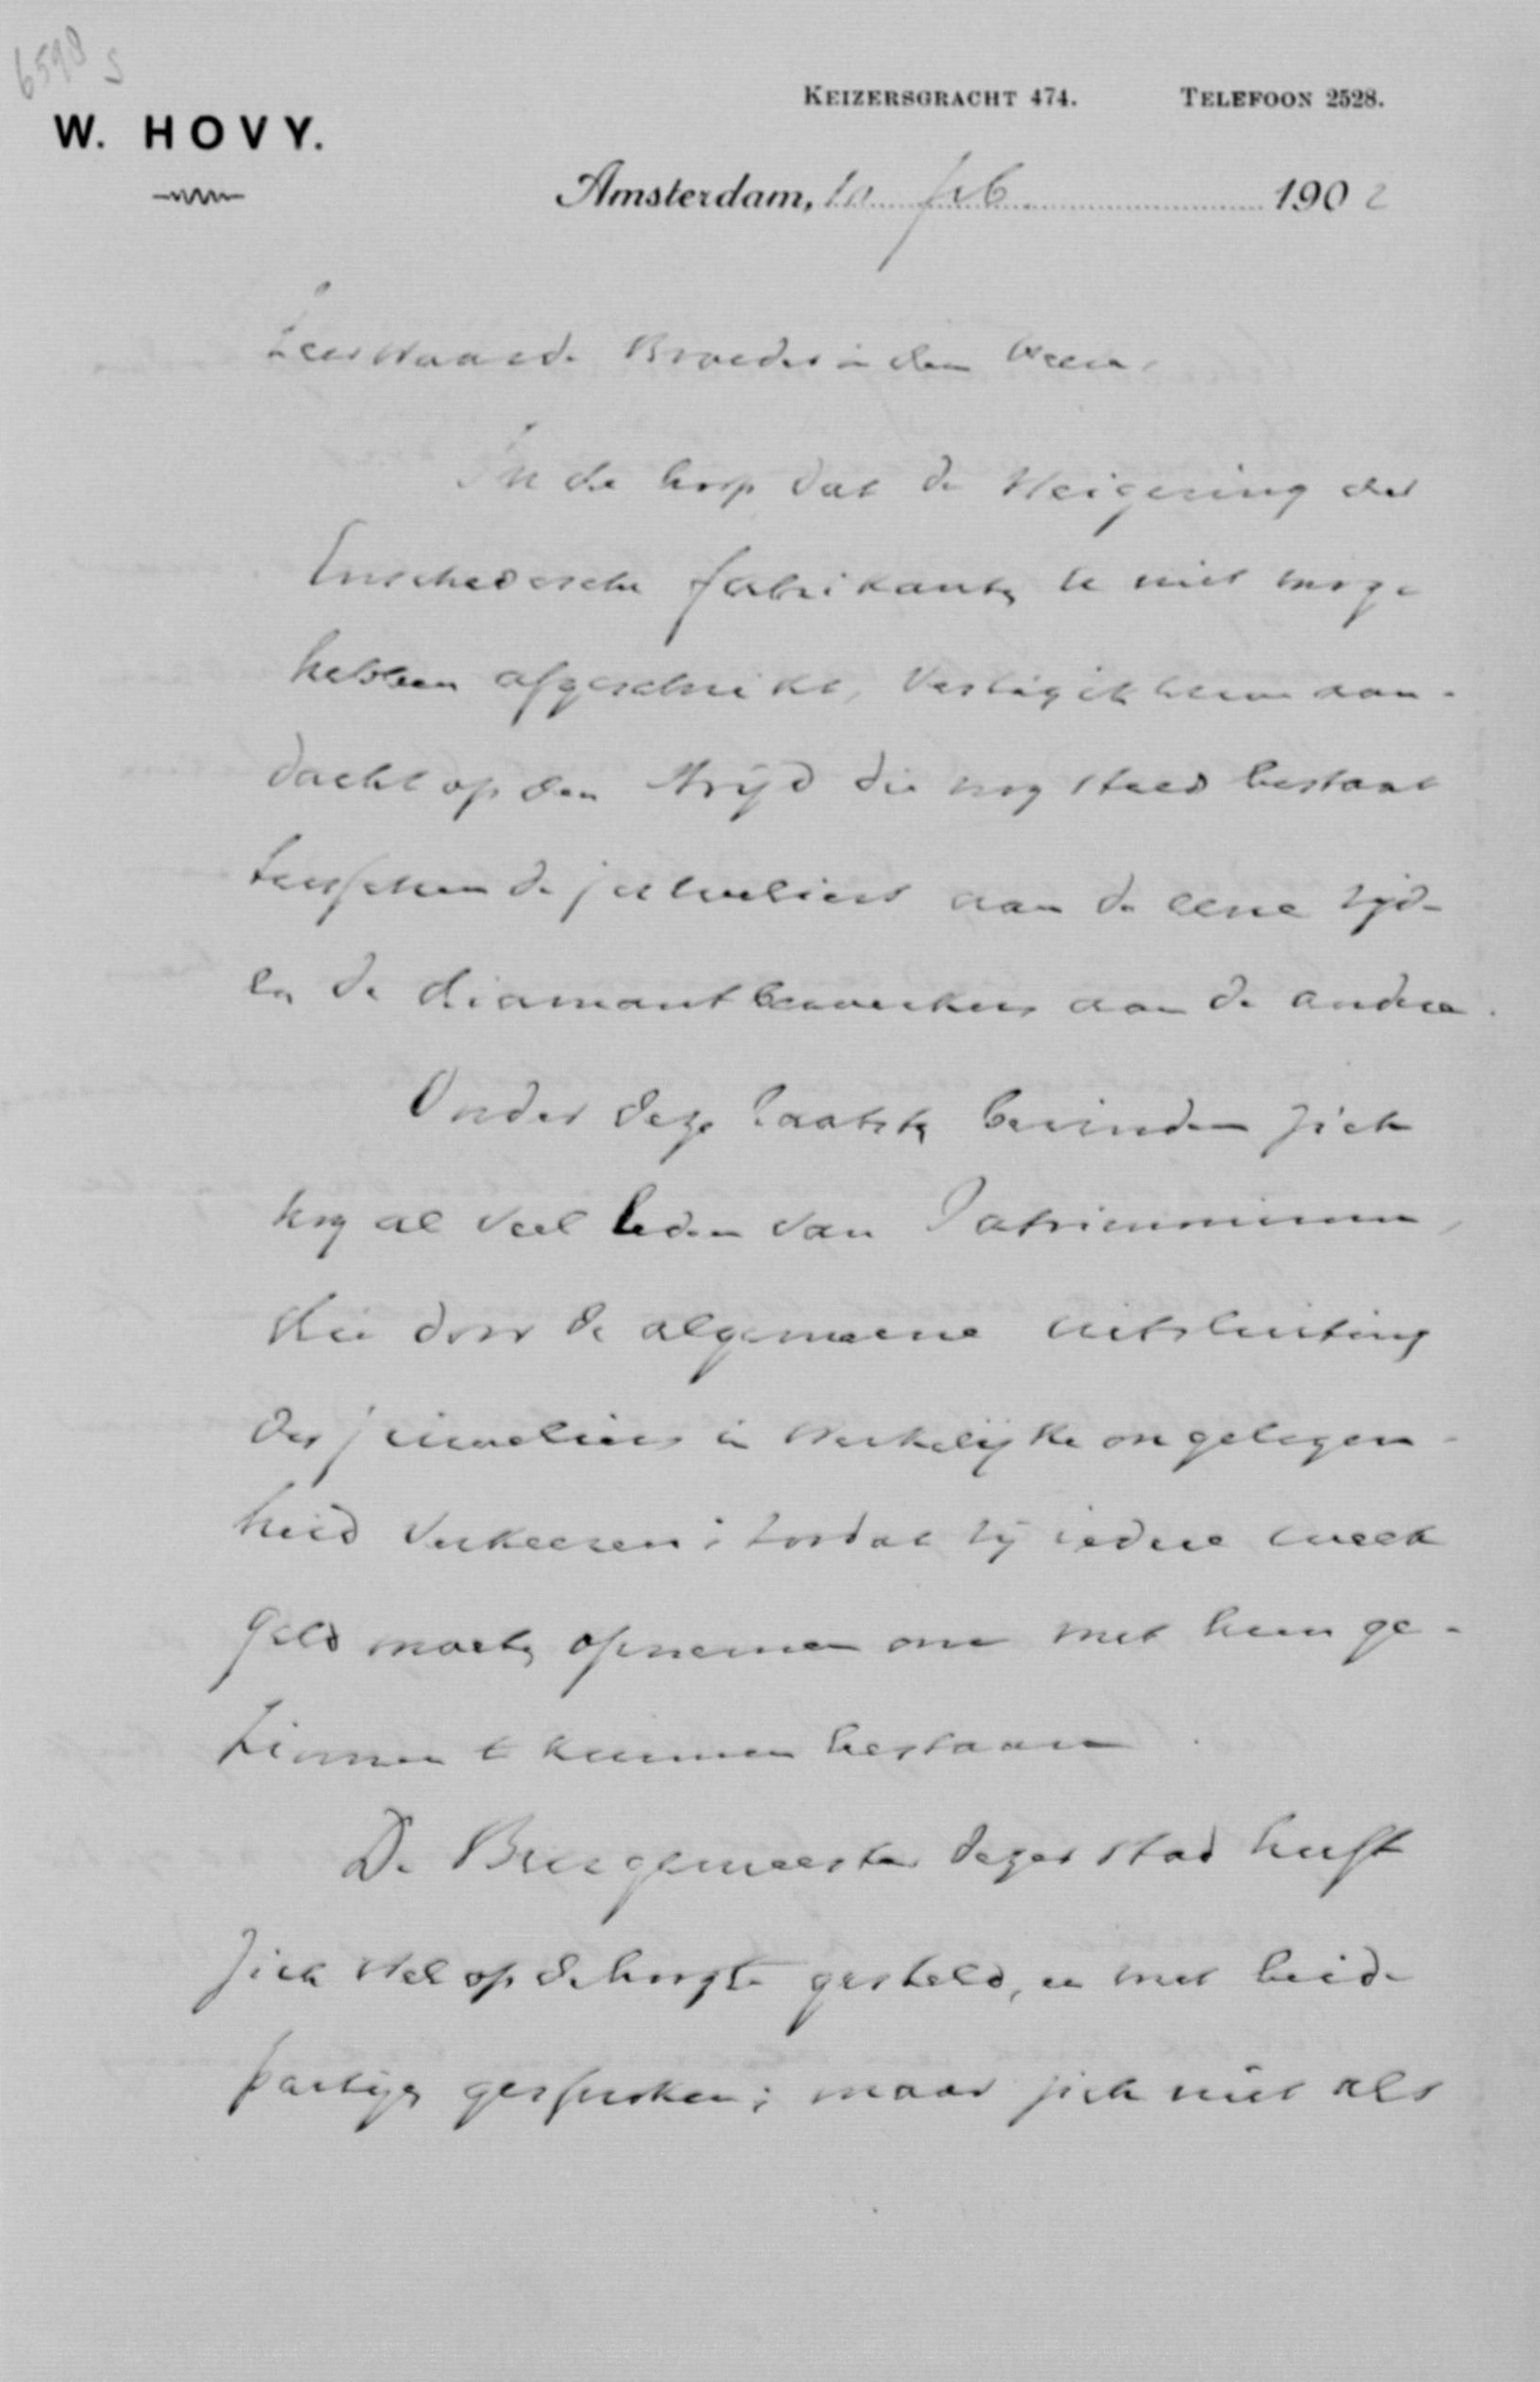 6598 S
KEIZERSGRACHT 474. TELEFOON 2528.
W. HOVY.
Amsterdam, 10 feb 1902
Zeer Waarde Broeder in den Heere,
In de hoop dat de Weigering der
Enschedesche fabrikanten U niet moge
hebben afgeschrikt, Vestig ik Uwe aan-
dacht op den Strijd die nog steeds bestaat
tusschen de juweliers aan de eene zijde
en de diamantbewerkers aan de andere.
Onder deze laatsten bevinden zich
nog al veel leden van Patrimonium,
die door de algemeene uitsluiting
der juweliers in Werkelijke ongelegen-
heid Verkeeren; zoodat zij iedere week
geld moeten opnemen om met hun ge-
zinnen te kunnen bestaan.
De Burgemeester dezer stad heeft
zich Wel op de hoogte gesteld, en met beide
partijen gesproken; maar zich niet als